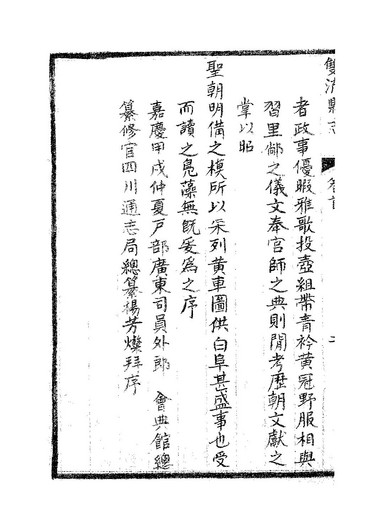 雙流縣志 卷首 二
者政事優暇雅歌投壺組帶青衿黃冠野服相與
習里鄉之儀文奉官師之典則閒考歷朝文獻之
掌以昭
聖朝明備之模所以采列黃車圖供白阜甚盛事也受
而讀之鳧藻無旣爰為之序
嘉慶甲戌仲夏戶部廣東司員外郎 會典館總
纂修官四川通志局總纂楊芳燦拜序